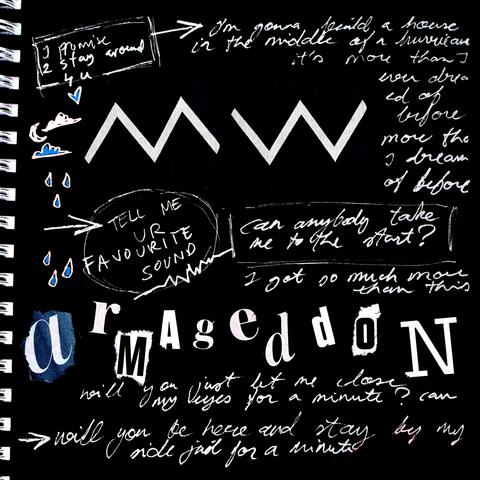 I Promise
2 Stay around
4 u
I'm gonna build a house
in the middle of a hurricane
it's more than I
ever drea
ed of
before
more tha
I dream
of before
MW
TELL ME
UR
FAVOURITE
SOUND
can anybody take
me to the start?
I got so much more
than this
arMAgeddoN
will you just let me close
my eyes for a minute? can
will you be here and stay by my
side just for a minute